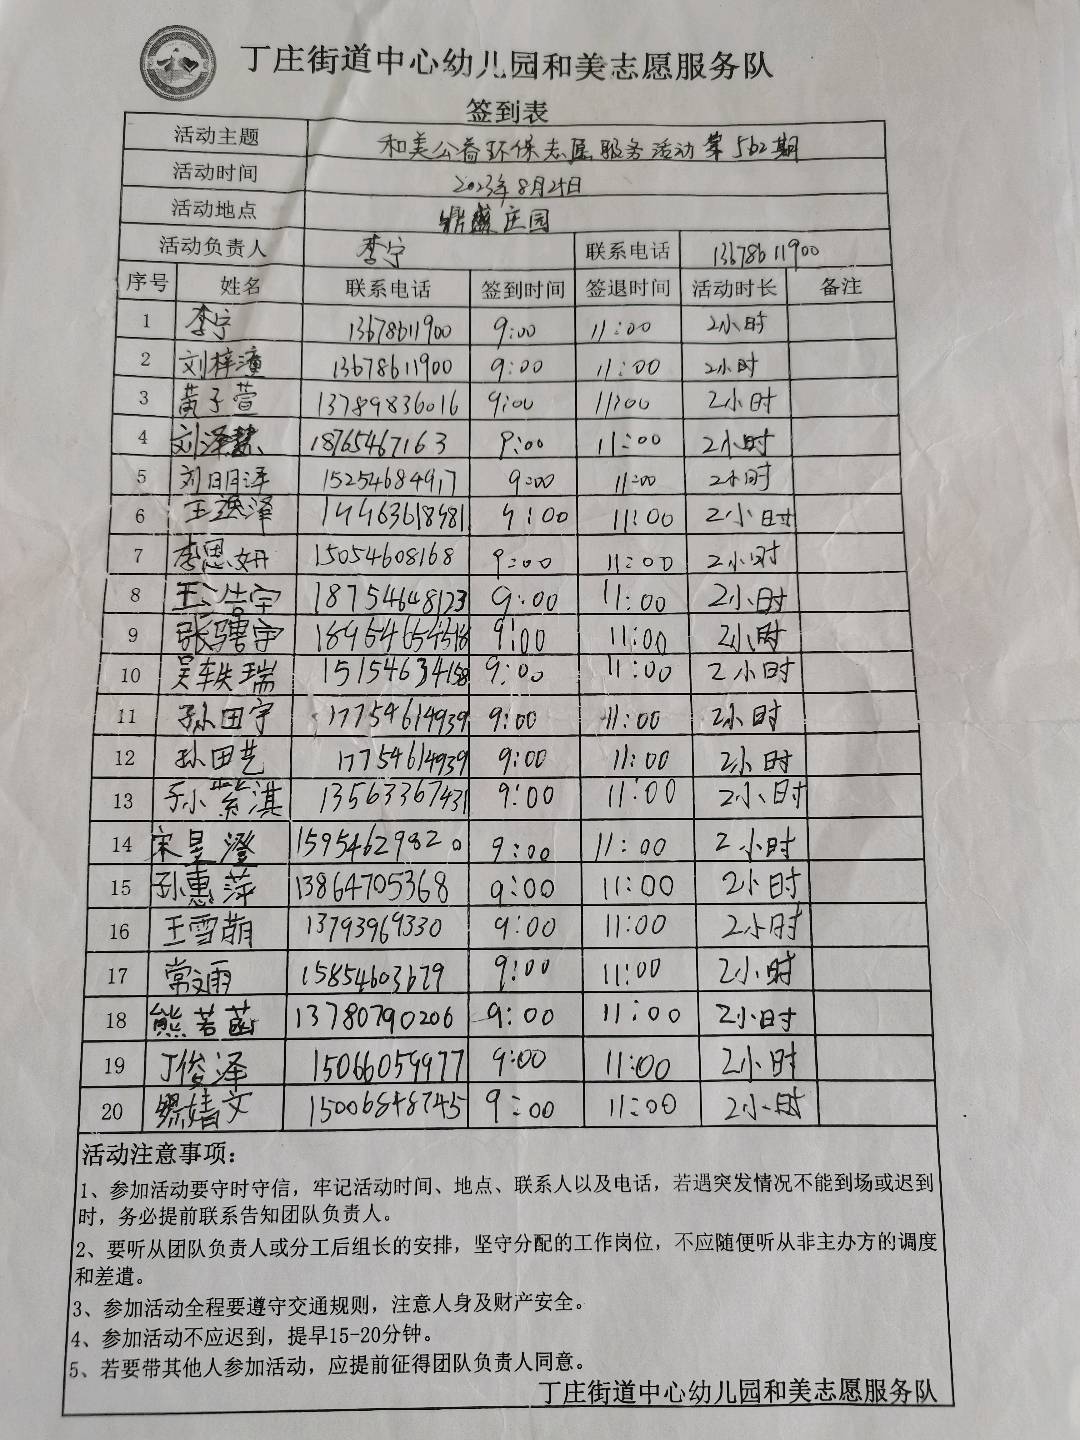 丁庄街道中心幼儿园和美志愿服务队
签到表
活动主题 和美公益环保志愿服务活动第562期
活动时间 2023年8月25日
活动地点 鼎盛庄园
活动负责人 李宁 联系电话 13678611900
序号 姓名 联系电话 签到时间 签退时间 活动时长 备注
1 李宁 13678611900 9:00 11:00 2小时
2 刘梓潼 13678611900 9:00 11:00 2小时
3 黄子萱 13789836016 9:00 11:00 2小时
4 刘泽慧 18765467163 9:00 11:00 2小时
5 刘明泽 15254684917 9:00 11:00 2小时
6 王逸泽 9:00 11:00 2小时
7 李思妍 15054608168 9:00 11:00 2小时
8 王浩宇 18754648123 9:00 11:00 2小时
9 张骞宇 9:00 11:00 2小时
10 吴轶瑞 15154634158 9:00 11:00 2小时
11 孙田宇 17754614939 9:00 11:00 2小时
12 孙田艺 17754614939 9:00 11:00 2小时
13 孙紫淇 13563367431 9:00 11:00 2小时
14 宋昱澄 15954629820 9:00 11:00 2小时
15 孙惠萍 13864705368 9:00 11:00 2小时
16 王雪萌 13793969330 9:00 11:00 2小时
17 常文雨 15854603679 9:00 11:00 2小时
18 熊若菡 13780790206 9:00 11:00 2小时
19 丁俊泽 15066059977 9:00 11:00 2小时
20 婧文 15006848745 9:00 11:00 2小时
活动注意事项：
1、参加活动要守时守信，牢记活动时间、地点、联系人以及电话，若遇突发情况不能到场或迟到
时，务必提前联系告知团队负责人。
2、要听从团队负责人或分工后组长的安排，坚守分配的工作岗位，不应随便听从非主办方的调度
和差遣。
3、参加活动全程要遵守交通规则，注意人身及财产安全。
4、参加活动不应迟到，提早15-20分钟。
5、若要带其他人参加活动，应提前征得团队负责人同意。
丁庄街道中心幼儿园和美志愿服务队